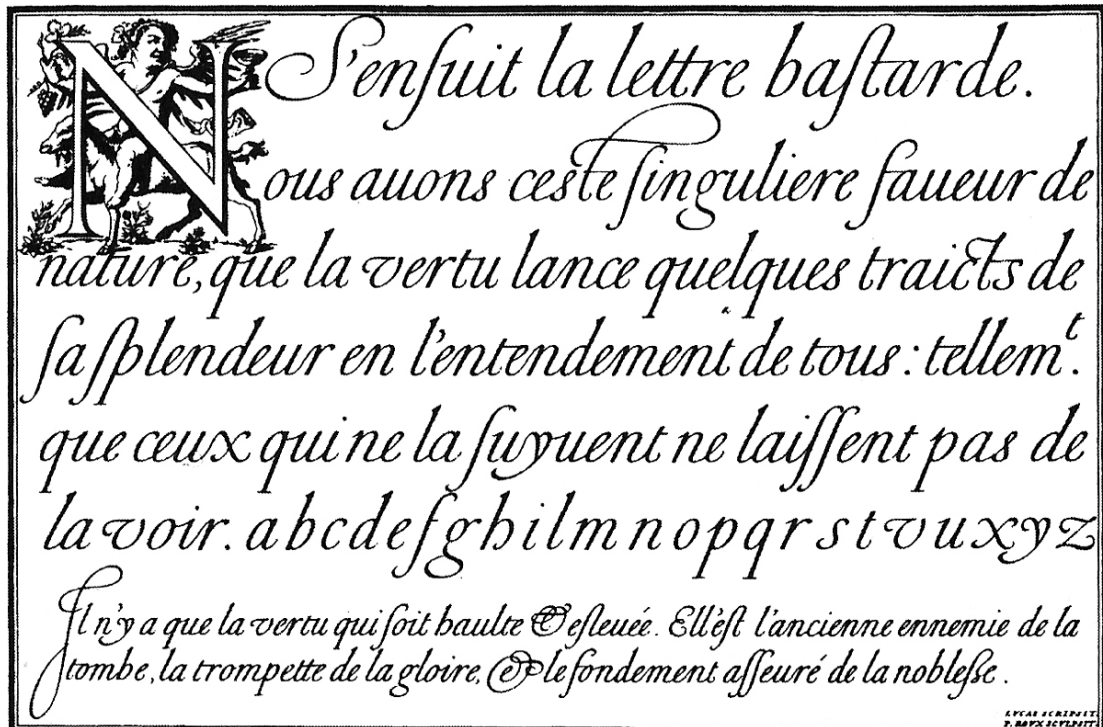 S'enſuit la lettre baſtarde.
Nous auons ceste ſinguliere faueur de
nature, que la vertu lance quelques traicts de
ſa ſplendeur en l'entendement de tous: tellemᵗ.
que ceux qui ne la ſuyuent ne laiſſent pas de
la voir. a b c d e f g h i l m n o p q r s t v u x y z
Il n'y a que la vertu qui ſoit haulte & eſleuée. Ell'eſt l'ancienne ennemie de la
tombe, la trompette de la gloire, & le fondement aſſeuré de la nobleſſe.
LVCAS SCRIPSIT.
P. ROVX SCVLPSIT.